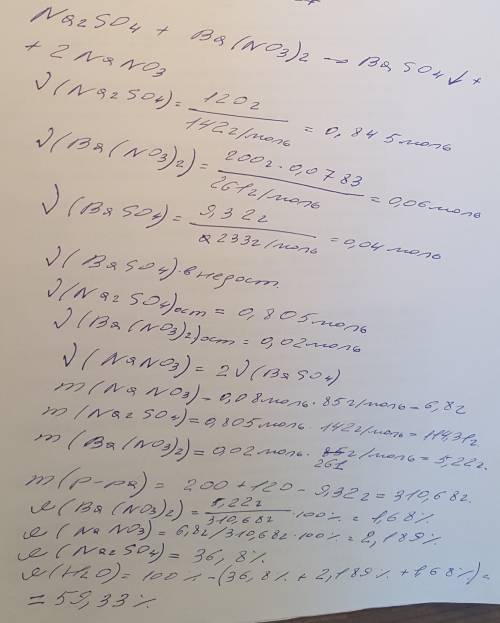 Na2SO4 + Ba(NO3)2 → BaSO4↓ +
+ 2NaNO3
ν(Na2SO4) = 120г / 142г/моль = 0,845моль
ν(Ba(NO3)2) = 200г · 0,0783 / 261г/моль = 0,06моль
ν(BaSO4) = 9,32г / 233г/моль = 0,04моль
ν(BaSO4) в недост.
ν(Na2SO4)ост = 0,805моль
ν(Ba(NO3)2)ост = 0,02моль
ν(NaNO3) = 2ν(BaSO4)
m(NaNO3) = 0,08моль · 85г/моль = 6,8г
m(Na2SO4) = 0,805моль · 142г/моль = 114,31г
m(Ba(NO3)2) = 0,02моль · 261г/моль = 5,22г.
m(р-ра) = 200 + 120 - 9,32г = 310,68г.
ω(Ba(NO3)2) = 5,22г / 310,68г · 100% = 1,68%
ω(NaNO3) = 6,8г/310,68г · 100% = 2,189%
ω(Na2SO4) = 36,8%
ω(H2O) = 100% - (36,8% + 2,189% + 1,68%) =
= 59,33%